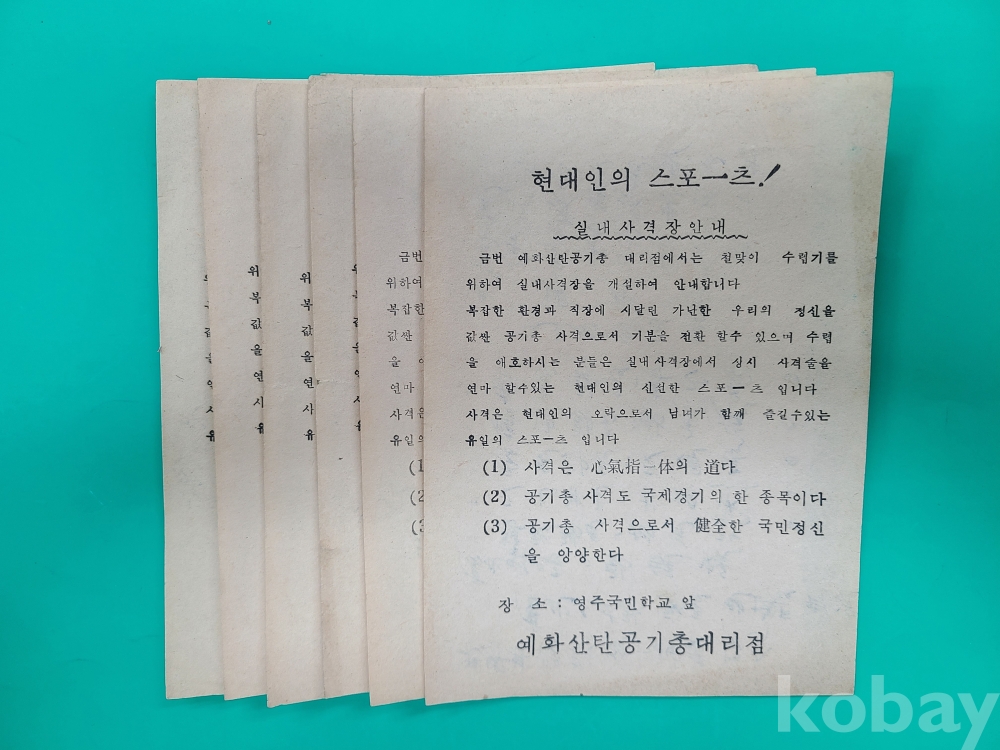 현대인의 스포ㅡ츠!
실내사격장안내
금번 예화산탄공기총 대리점에서는 철맞이 수렵기를
위하여 실내사격장을 개설하여 안내합니다
복잡한 환경과 직장에 시달린 가난한 우리의 정신을
값싼 공기총 사격으로서 기분을 전환 할수 있으며 수렵
을 애호하시는 분들은 실내사격장에서 싱시 사격술을
연마 할수있는 현대인의 신선한 스포ㅡ츠 입니다
사격은 현대인의 오락으로서 남녀가 함깨 즐길수있는
유일의 스포ㅡ츠 입니다
(1) 사격은 心氣指一体의 道다
(2) 공기총 사격도 국제경기의 한 종목이다
(3) 공기총 사격으로서 健全한 국민정신
을 앙양한다
장 소 : 영주국민학교 앞
예화산탄공기총대리점
금번
위하여
복잡한
값싼
을
연마
사격은
유일의
(1
(2
위
복
값
을
연
사
유
위
복
값
을
연
사
유
kobay